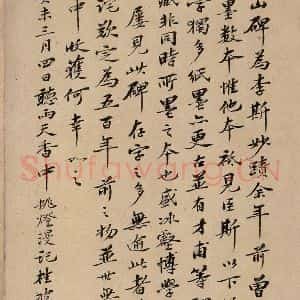 山碑為李斯妙蹟余年前曾
墨數本惟他本祇見臣斯以下
字獨多紙墨亦更古並有才甫等
臧非同時所墨之本也盛冰壑博學
屢見此碑存字多無逾此者
說欽定為五百年前之物並世無
中收獲何幸
癸未三月四日聽雨天香中挑燈漫記
Shufawang.CN